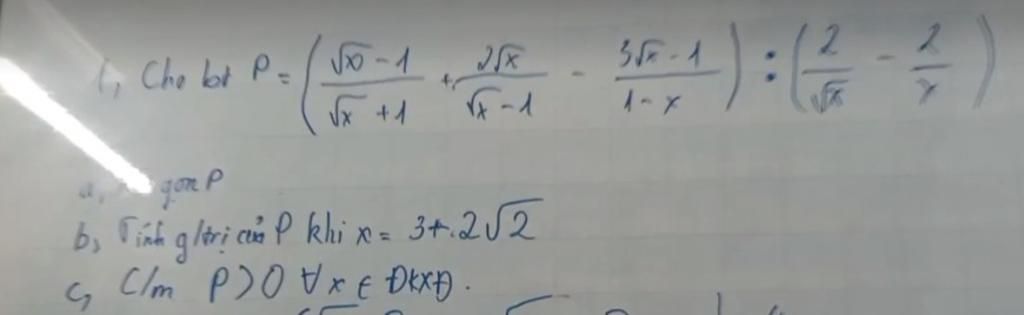 1, Cho bt P = ( (√x - 1)/(√x + 1) + 2√x/(√x - 1) - (3√x - 1)/(1 - x) ) : ( 2/√x - 2/x )
a, gọn P
b, Tính g/trị của P khi x = 3 + 2√2
c, C/m P > 0 ∀x ∈ ĐKXĐ.